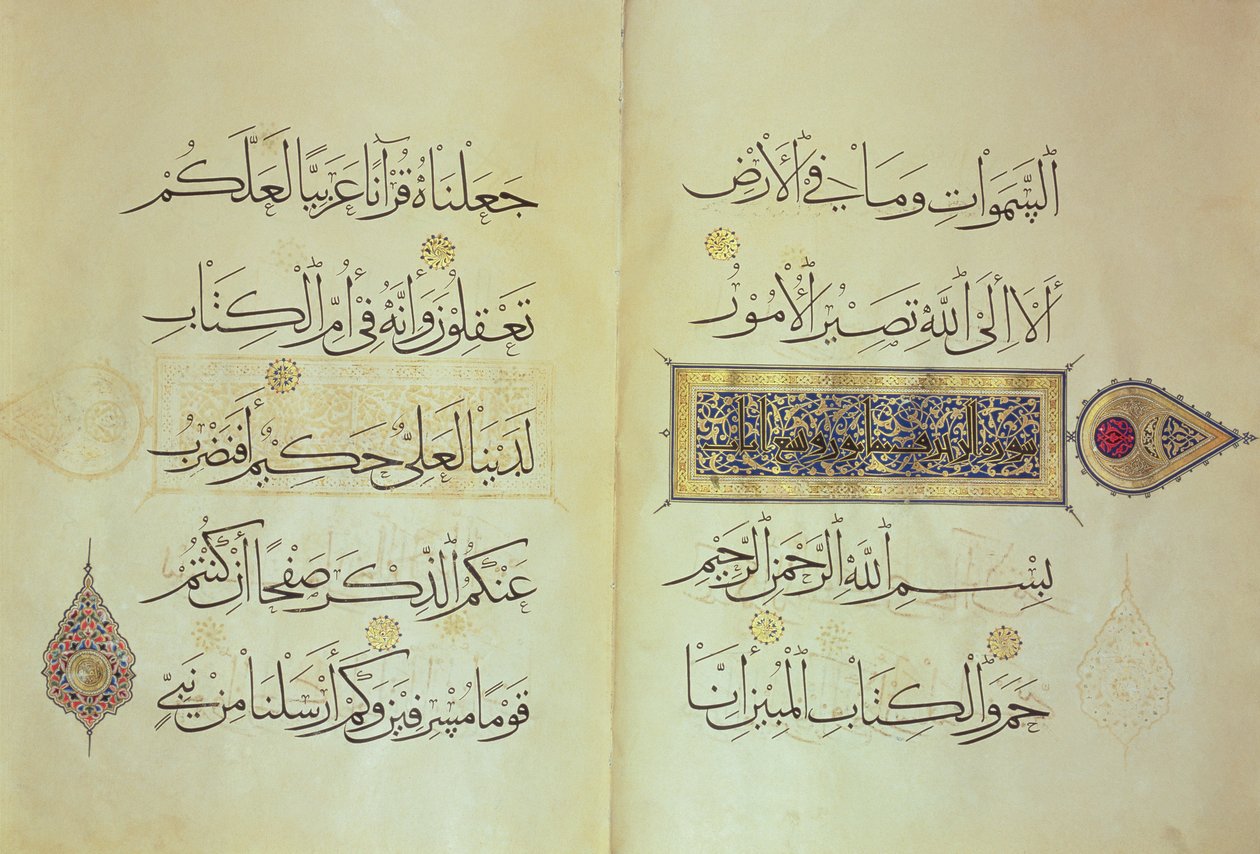 ٱلسَّمَوَاتِ وَمَا فِي ٱلْأَرْضِ
أَلَا إِلَى ٱللَّهِ تَصِيرُ ٱلْأُمُورُ
سورة الزخرف ثمانون وتسع ايات
بِسْمِ ٱللَّهِ ٱلرَّحْمَنِ ٱلرَّحِيمِ
حَمَ وَٱلْكِتَابِ ٱلْمُبِينِ إِنَّا
جَعَلْنَاهُ قُرْآنًا عَرَبِيًّا لَعَلَّكُمْ
تَعْقِلُونَ وَإِنَّهُ فِي أُمِّ ٱلْكِتَابِ
لَدَيْنَا لَعَلِيٌّ حَكِيمٌ أَفَنَضْرِبُ
عَنْكُمُ ٱلذِّكْرَ صَفْحًا أَنْ كُنْتُمْ
قَوْمًا مُسْرِفِينَ وَكَمْ أَرْسَلْنَا مِنْ نَبِيٍّ